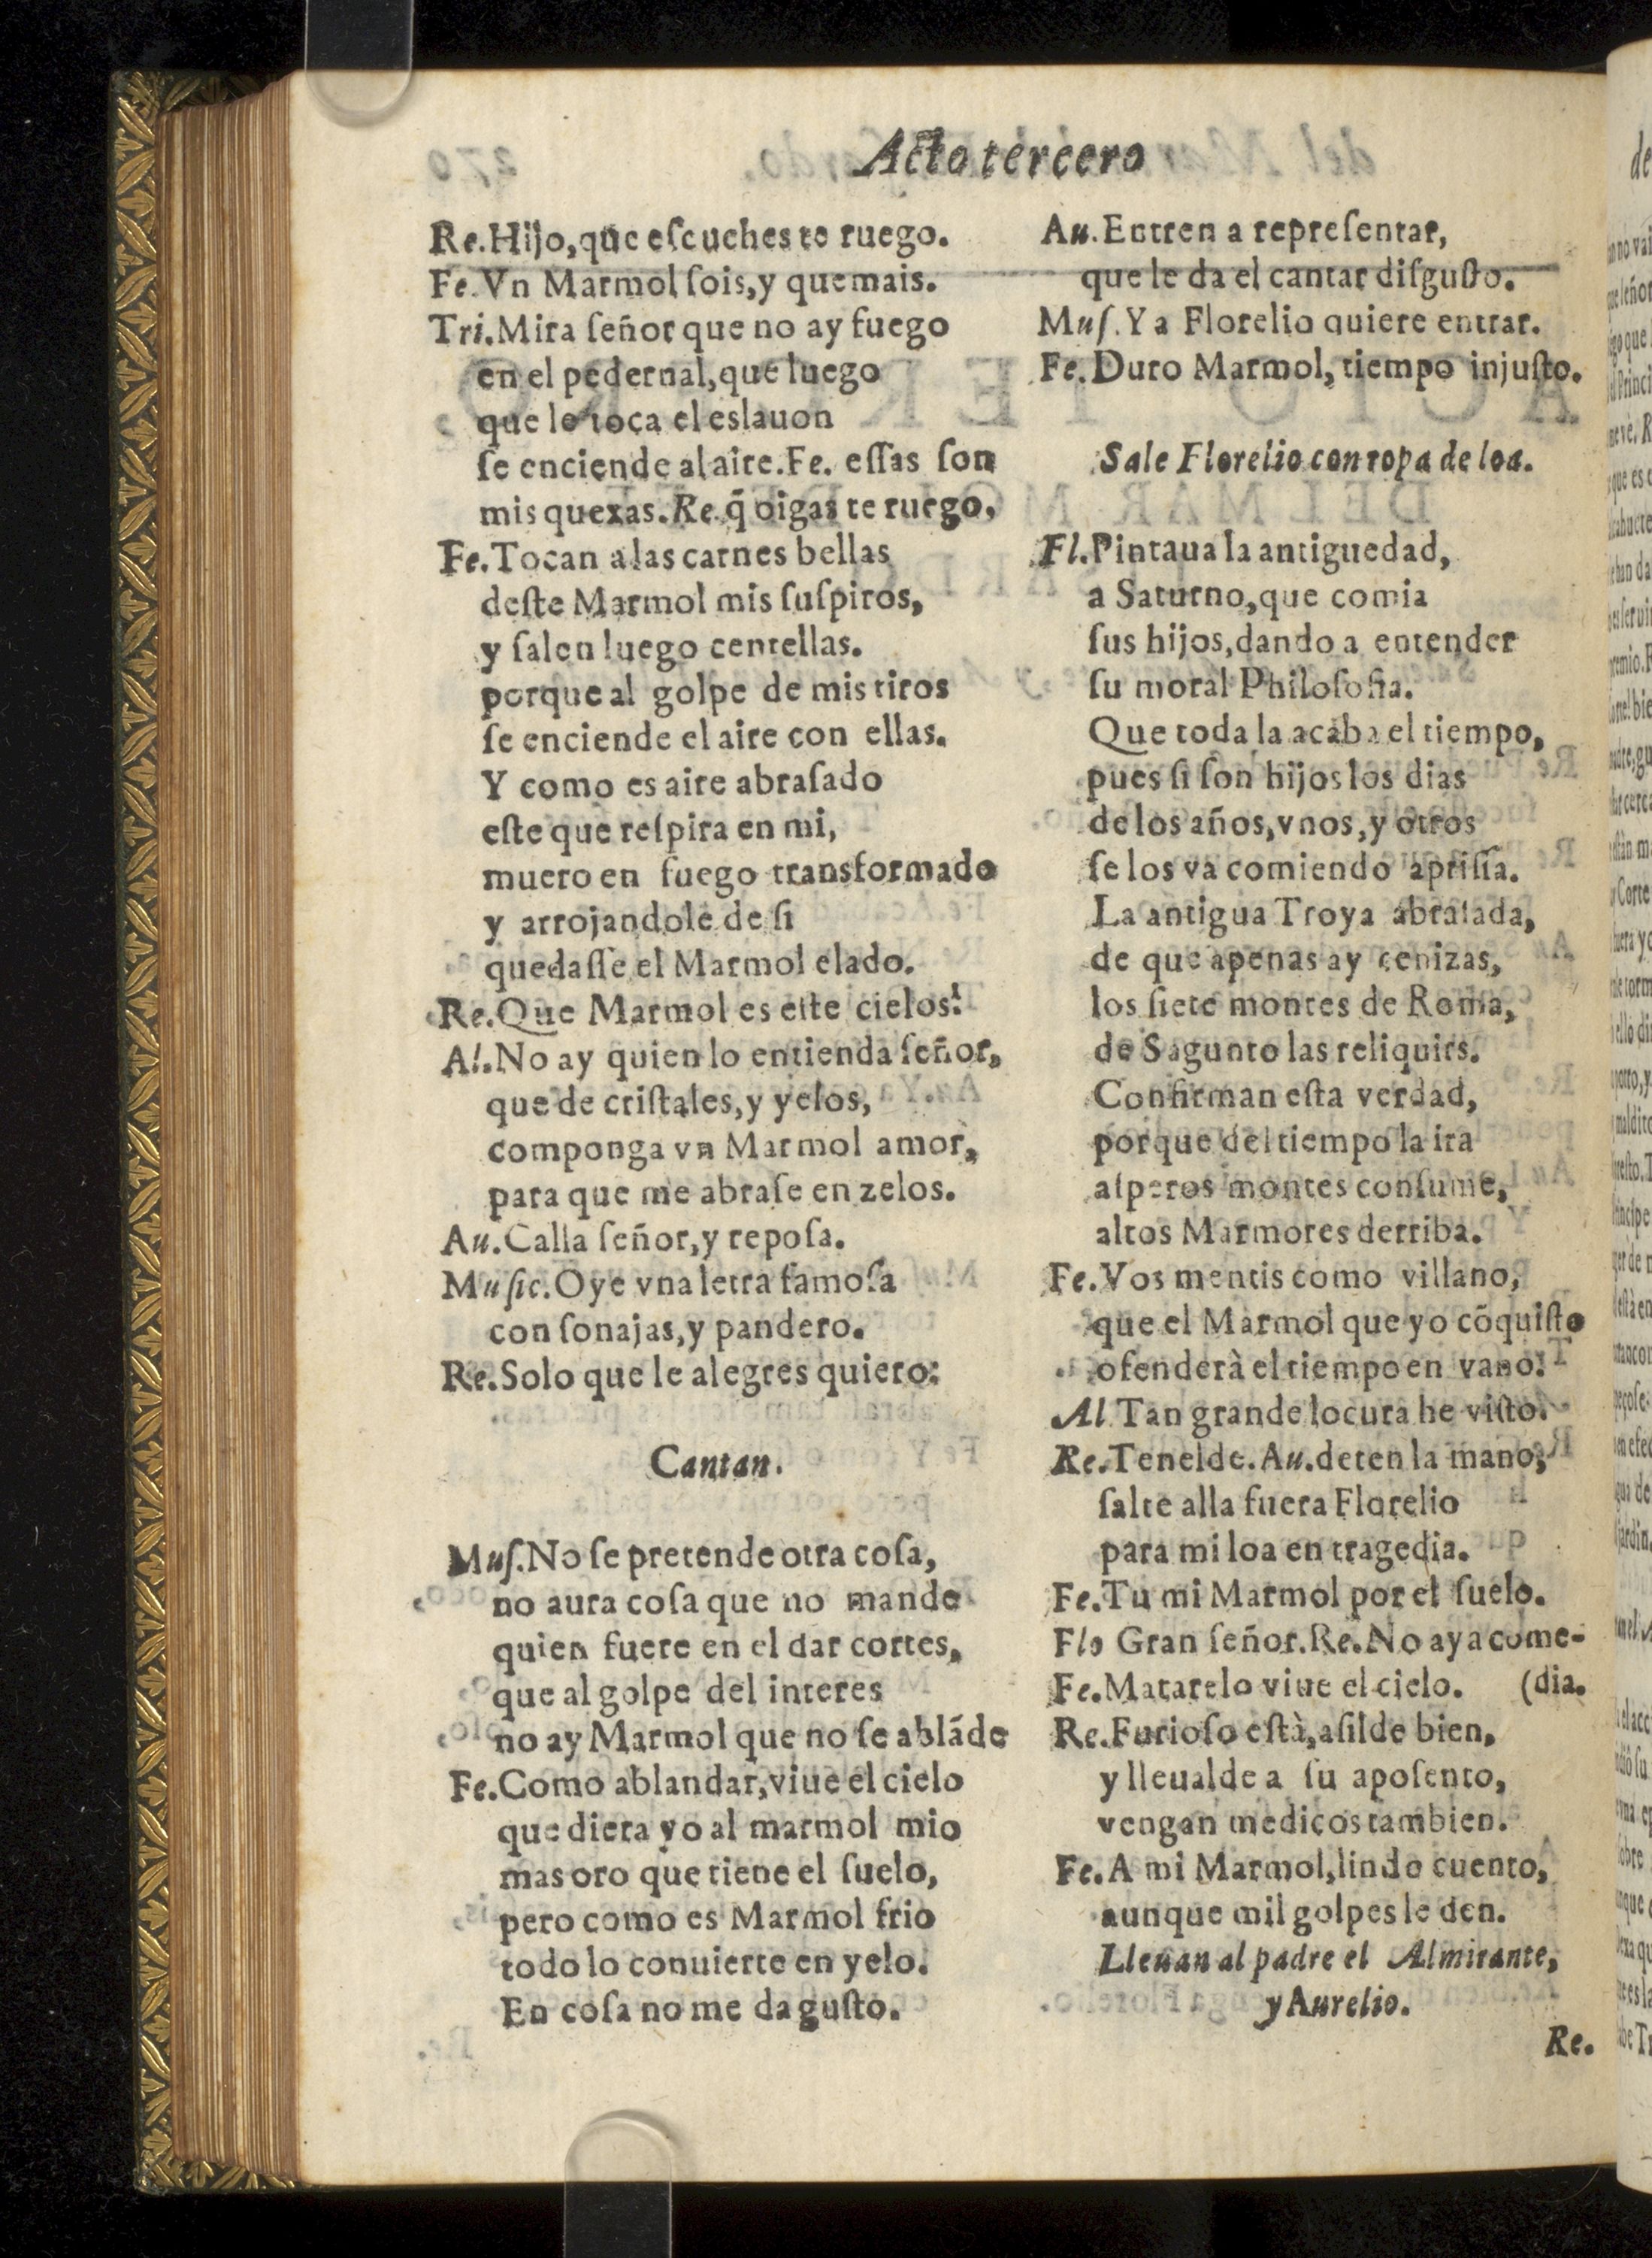 Acto tercero
Re.Hijo,que escuches te ruego.
Fe.Vn Marmol sois,y quemais.
Tri.Mira señor que no ay fuego
en el pedernal,que luego
que le toca el eslauon
se enciende al aire.Fe. essas son
mis quexas.Re.q̃ oigas te ruego.
Fe.Tocan a las carnes bellas
deste Marmol mis suspiros,
y salen luego centellas.
porque al golpe de mis tiros
se enciende el aire con ellas.
Y como es aire abrasado
este que respira en mi,
muero en fuego transformado
y arrojandole de si
quedasse el Marmol elado.
Re.Que Marmol es este cielos!
Al.No ay quien lo entienda señor,
que de cristales,y yelos,
componga vn Marmol amor,
para que me abrase en zelos.
Au.Calla señor,y reposa.
Music.Oye vna letra famosa
con sonajas,y pandero.
Re.Solo que le alegres quiero:
Cantan.
Mus.No se pretende otra cosa,
no aura cosa que no mande
quien fuere en el dar cortes,
que al golpe del interes
no ay Marmol que no se abláde
Fe.Como ablandar,viue el cielo
que diera yo al marmol mio
mas oro que tiene el suelo,
pero como es Marmol frio
todo lo conuierte en yelo.
En cosa no me da gusto.
Au.Entren a representar,
que le da el cantar disgusto.
Mus.Ya Florelio quiere entrar.
Fe.Duro Marmol, tiempo injusto.
Sale Florelio con ropa de loa.
Fl.Pintaua la antiguedad,
a Saturno,que comia
sus hijos,dando a entender
su moral Philosofia.
Que toda la acaba el tiempo,
pues si son hijos los dias
de los años,vnos,y otros
se los va comiendo aprissa.
La antigua Troya abrasada,
de que apenas ay cenizas,
los siete montes de Roma,
de Sagunto las reliquies.
Confirman esta verdad,
porque del tiempo la ira
asperos montes consume,
altos Marmores derriba.
Fe.Vos mentis como villano,
que el Marmol que yo cõquisto
ofenderà el tiempo en vano.
Al.Tan grande locura he visto.
Re.Tenelde.Au.deten la mano;
salte alla fuera Florelio
para mi loa en tragedia.
Fe.Tu mi Marmol por el suelo.
Flo Gran señor.Re.No aya come-
Fe.Matarelo viue el cielo. (dia.
Re.Furioso està,asilde bien,
y lleualde a su aposento,
vengan medicos tambien.
Fe.A mi Marmol,lindo cuento,
aunque mil golpes le den.
Lleuan al padre el Almirante,
y Aurelio.
Re.